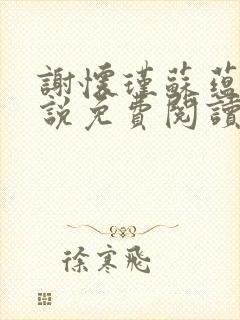 謝懷瑾蘇蘊
說免費閱讀
徐寒飛